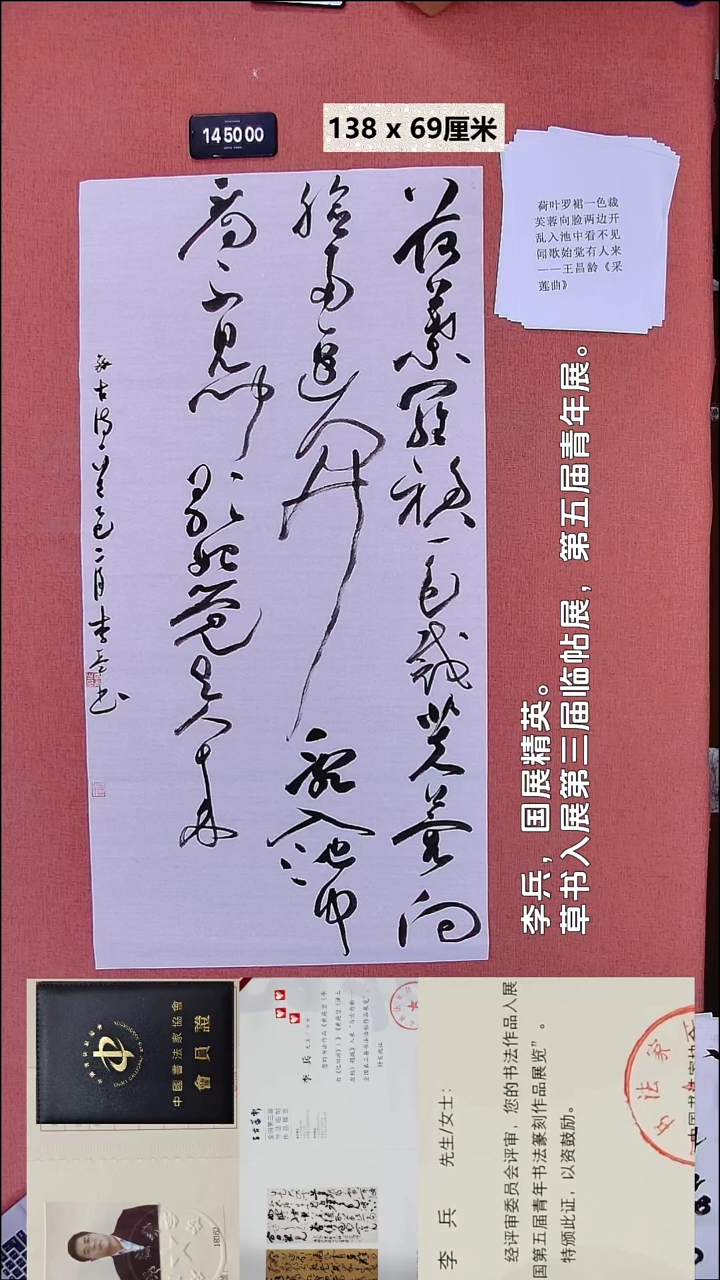 14 50 00
138 x 69厘米
荷叶罗裙一色裁
芙蓉向脸两边开
乱入池中看不见
闻歌始觉有人来
——王昌龄《采
莲曲》
荷葉羅裙一色裁芙蓉向
臉兩邊開亂入池中
看不見聞歌始覺有人来
古诗一首乙巳二月李兵书
李兵，国展精英。
草书入展第三届临帖展，第五届青年展。
中國書法家協會
會員證
李 兵
全国第三届
李 兵 先生/女士：
经评审委员会评审，您的书法作品入展
国第五届青年书法篆刻作品展览”。
特颁此证，以资鼓励。